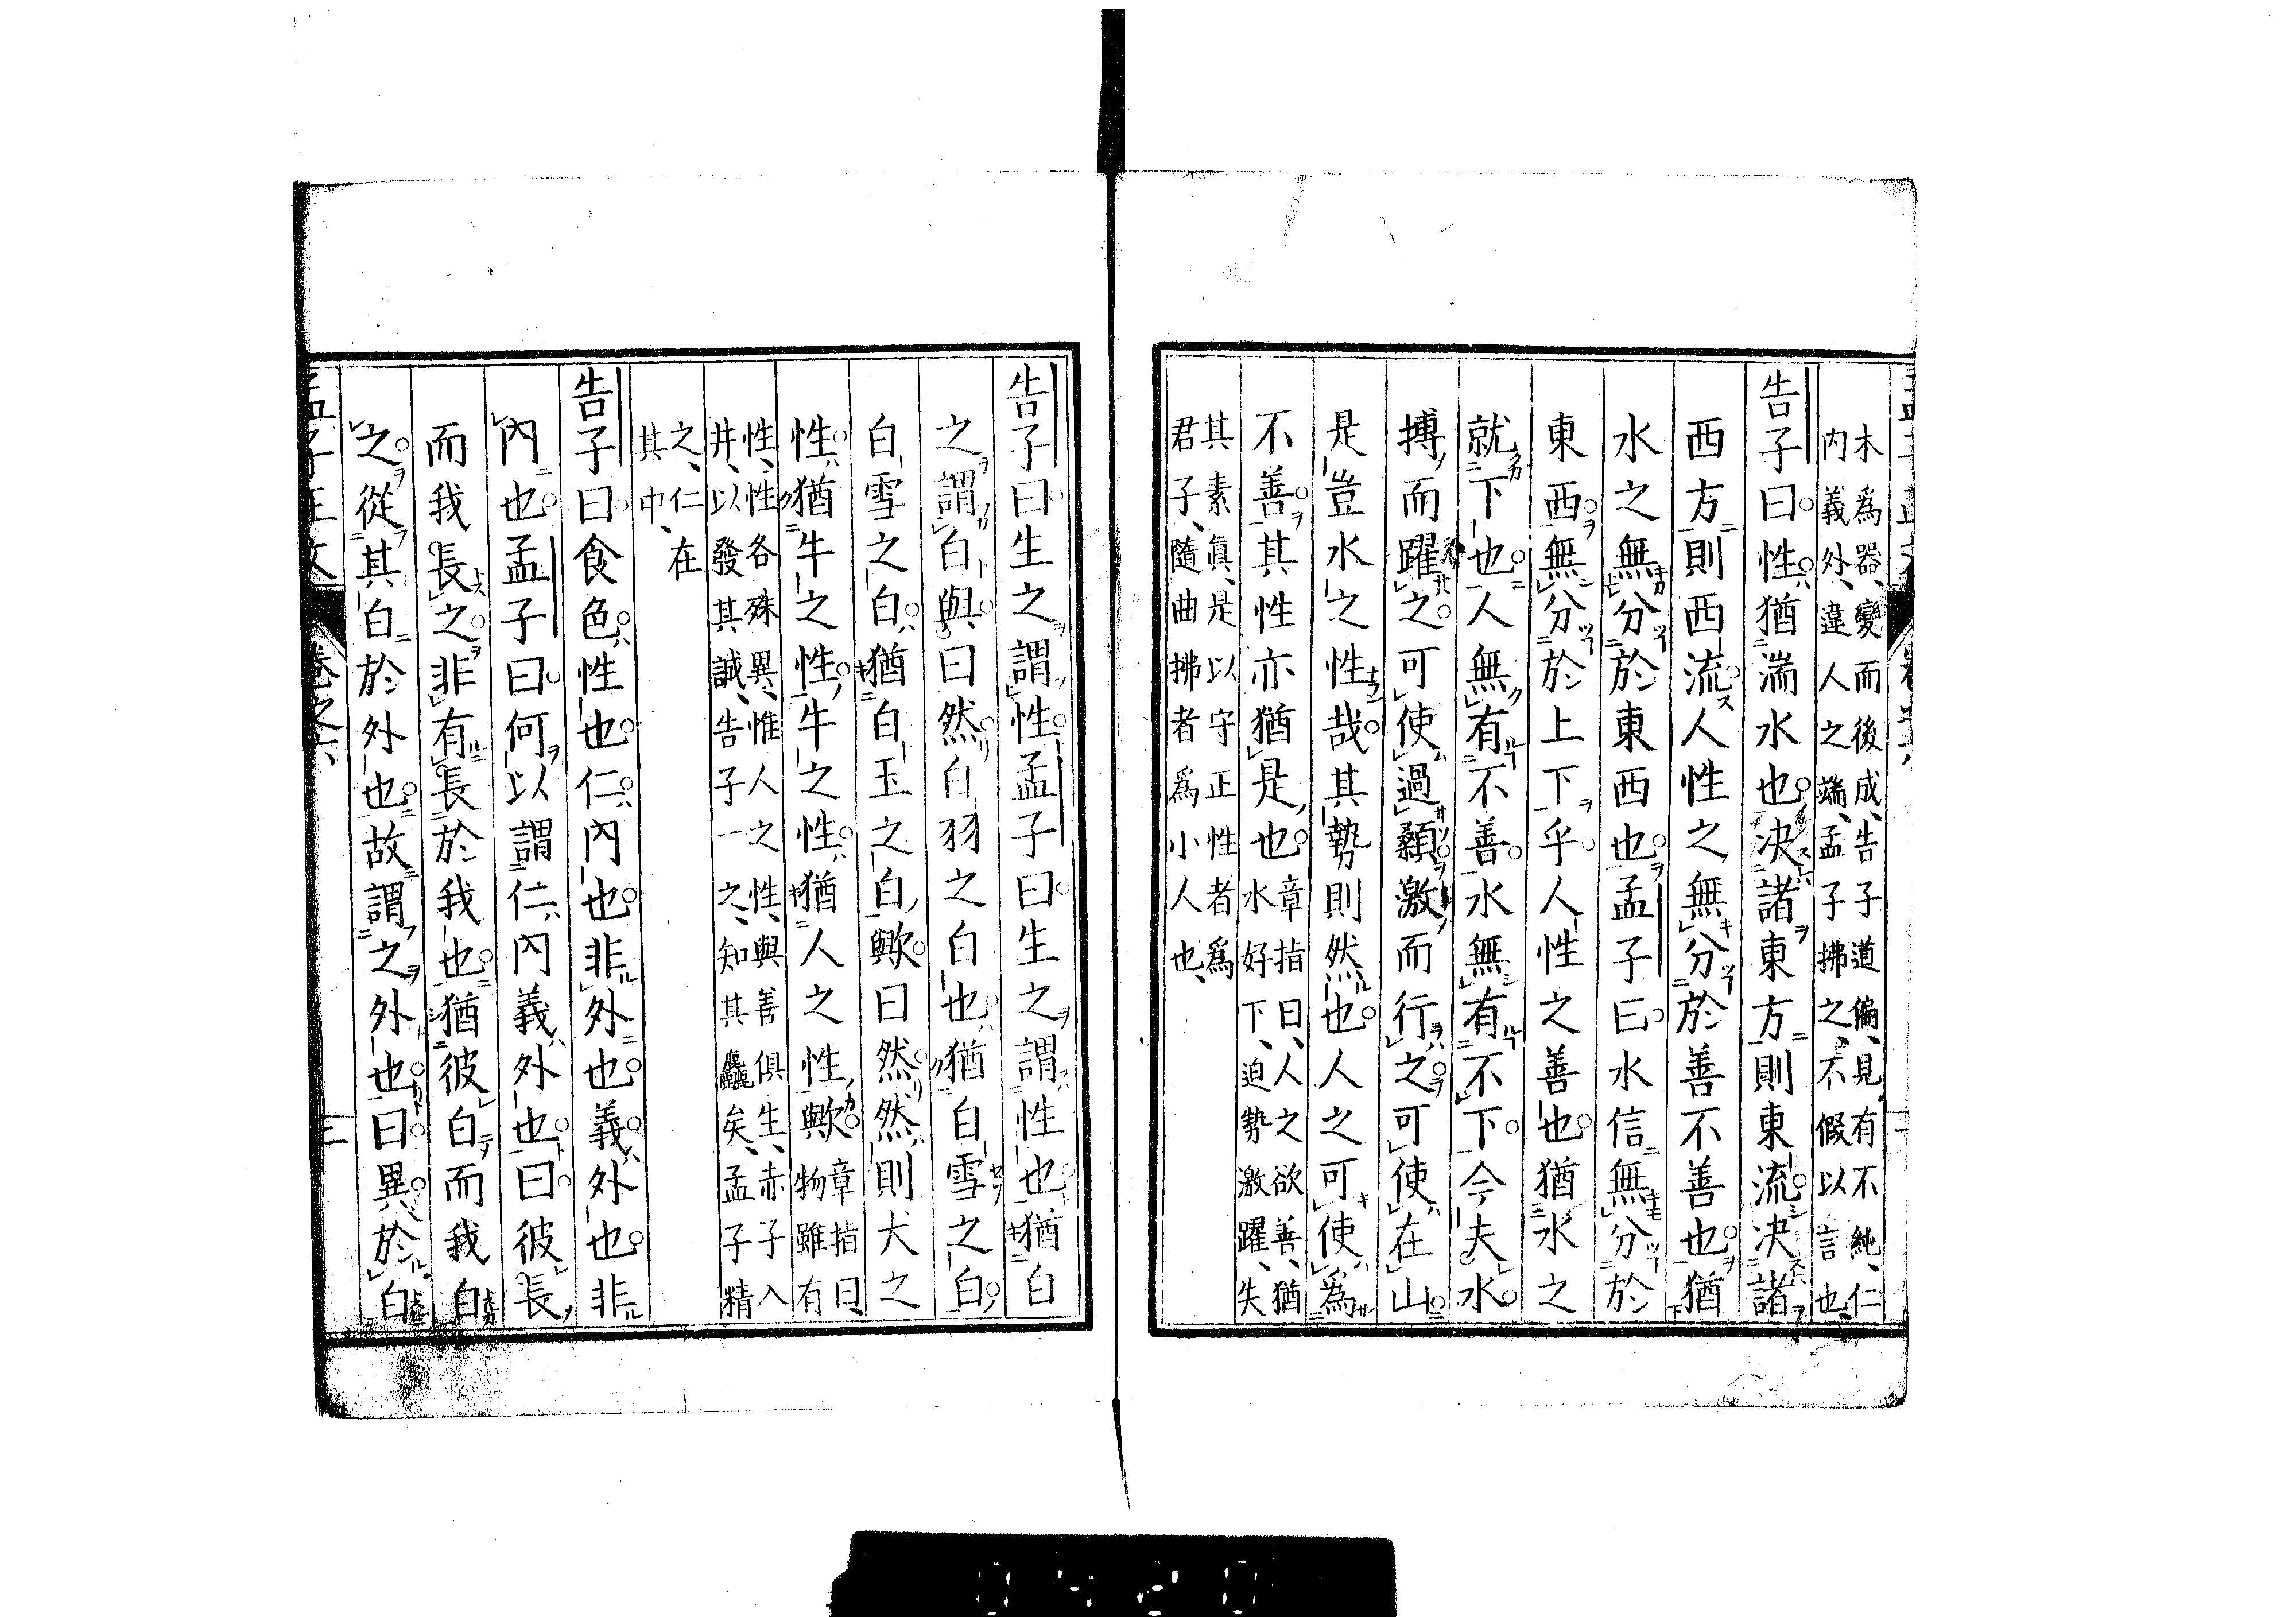 木爲器、變而後成、告子道偏、見有不純、仁
内義外、違人之端、孟子拂之、不假以言也、
告子曰性猶湍水也决諸東方則東流决諸
西方則西流人性之無分於善不善也猶
水之無分於東西也孟子曰水信無分於
東西無分於上下乎人性之善也猶水之
就下也人無有不善水無有不下今夫水
搏而躍之可使過顙激而行之可使在山
是豈水之性哉其勢則然也人之可使爲
不善其性亦猶是也章指曰、人之欲善、猶
水好下、迫勢激躍、失
其素眞、是以守正性者爲
君子、隨曲拂者爲小人也、
告子曰生之謂性孟子曰生之謂性也猶白
之謂白與曰然白羽之白也猶白雪之白
白雪之白猶白玉之白歟曰然然則犬之
性猶牛之性牛之性猶人之性歟章指曰、
物雖有
性、性各殊異、惟人之性、與善俱生、赤子入
井、以發其誠、告子一之、知其麤矣、孟子精
之、仁在
其中、
告子曰食色性也仁内也非外也義外也非
内也孟子曰何以謂仁内義外也曰彼長
而我長之非有長於我也猶彼白而我白
之從其白於外也故謂之外也曰異於白
卷之六